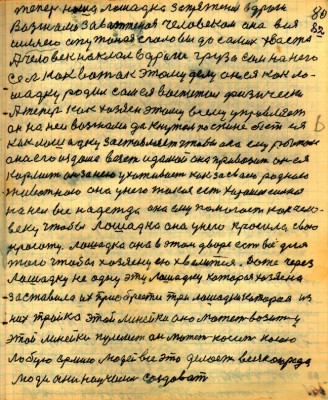 теперь наша лошадка запряжена вдроги
80
возжами завантажена человеком она вия
52
шлею опутоная словом до самих хваста
А человек наклав дроги груза сам на него
сел как вожак этому делу он ея как ло-
шадку родил сам ея воспитал физически
А тепер как хозяен этому всему управляет
он на неи возжами да кнутом по спине бет ея
как лошадку заставляет чтобы она ему рытком
она его издаля везет и дамой она привозит он ея
кормит он за нею ухажевает как за своею родною
животною она у него такоя ест
на неи все надежда она ему помогает как чело-
веку чтобы лошадка она у него красила свою
красоту. лошадка она в этом дворе ест все для
того чтобы хозяену ею хвалится. вот через
лошадку не одну эту лошадку которая хозяена
заставила их приобрести три лошадки которая из
них тройка этой линейки оно может возит у
этой линейки пулемет он может косит какою
любую армию людей все это делает всячо природа
люди они научилис создоват